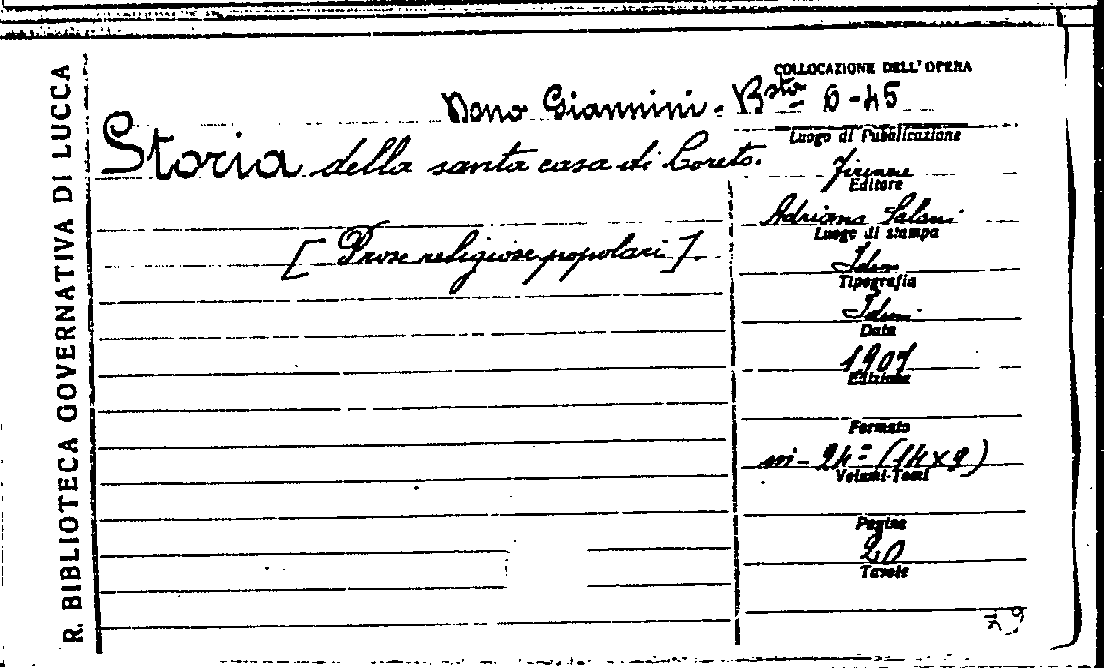 R. BIBLIOTECA GOVERNATIVA DI LUCCA
COLLOCAZIONE DELL'OPERA
Dono Giannini - Bsta 6-45
Storia della santa casa di Loreto.
[Prose religiose popolari]
Luogo di Pubblicazione
Firenze
Editore
Adriano Salani
Luogo di stampa
Idem
Tipografia
Idem
Data
1907
Edizione
Formato
in-24º (14x9)
Volumi-Tomi
Pagine
20
Tavole